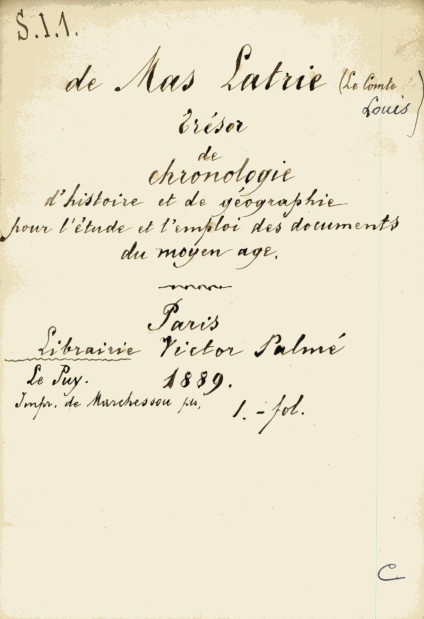 S.I.1.
de Mas Latrie (Le Comte
Louis)
Trésor
de
chronologie
d'histoire et de géographie
pour l'étude et l'emploi des documents
du moyen age.
Paris
Librairie Victor Palmé
Le Puy. 1889.
Impr. de Marchessou
1.-fol.
C